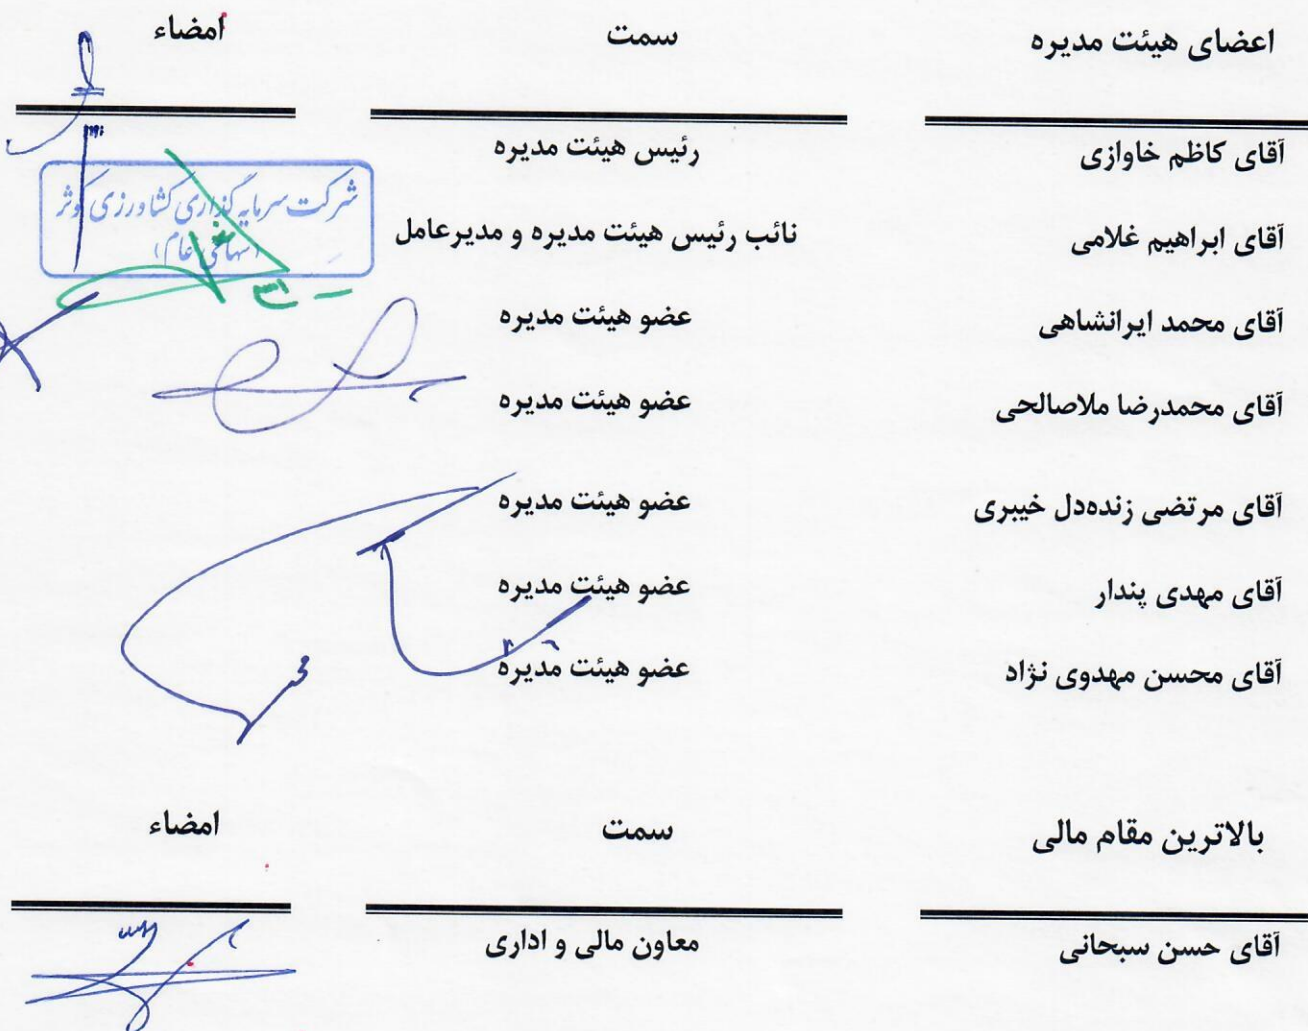 اعضای هیئت مدیره سمت امضاء
آقای کاظم خاوازی رئیس هیئت مدیره
شرکت سرمایه گذاری کشاورزی کوثر
(سهامی عام)
آقای ابراهیم غلامی نائب رئیس هیئت مدیره و مدیرعامل
آقای محمد ایرانشاهی عضو هیئت مدیره
آقای محمدرضا ملاصالحی عضو هیئت مدیره
آقای مرتضی زنده‌دل خیبری عضو هیئت مدیره
آقای مهدی پندار عضو هیئت مدیره
آقای محسن مهدوی نژاد عضو هیئت مدیره
بالاترین مقام مالی سمت امضاء
آقای حسن سبحانی معاون مالی و اداری